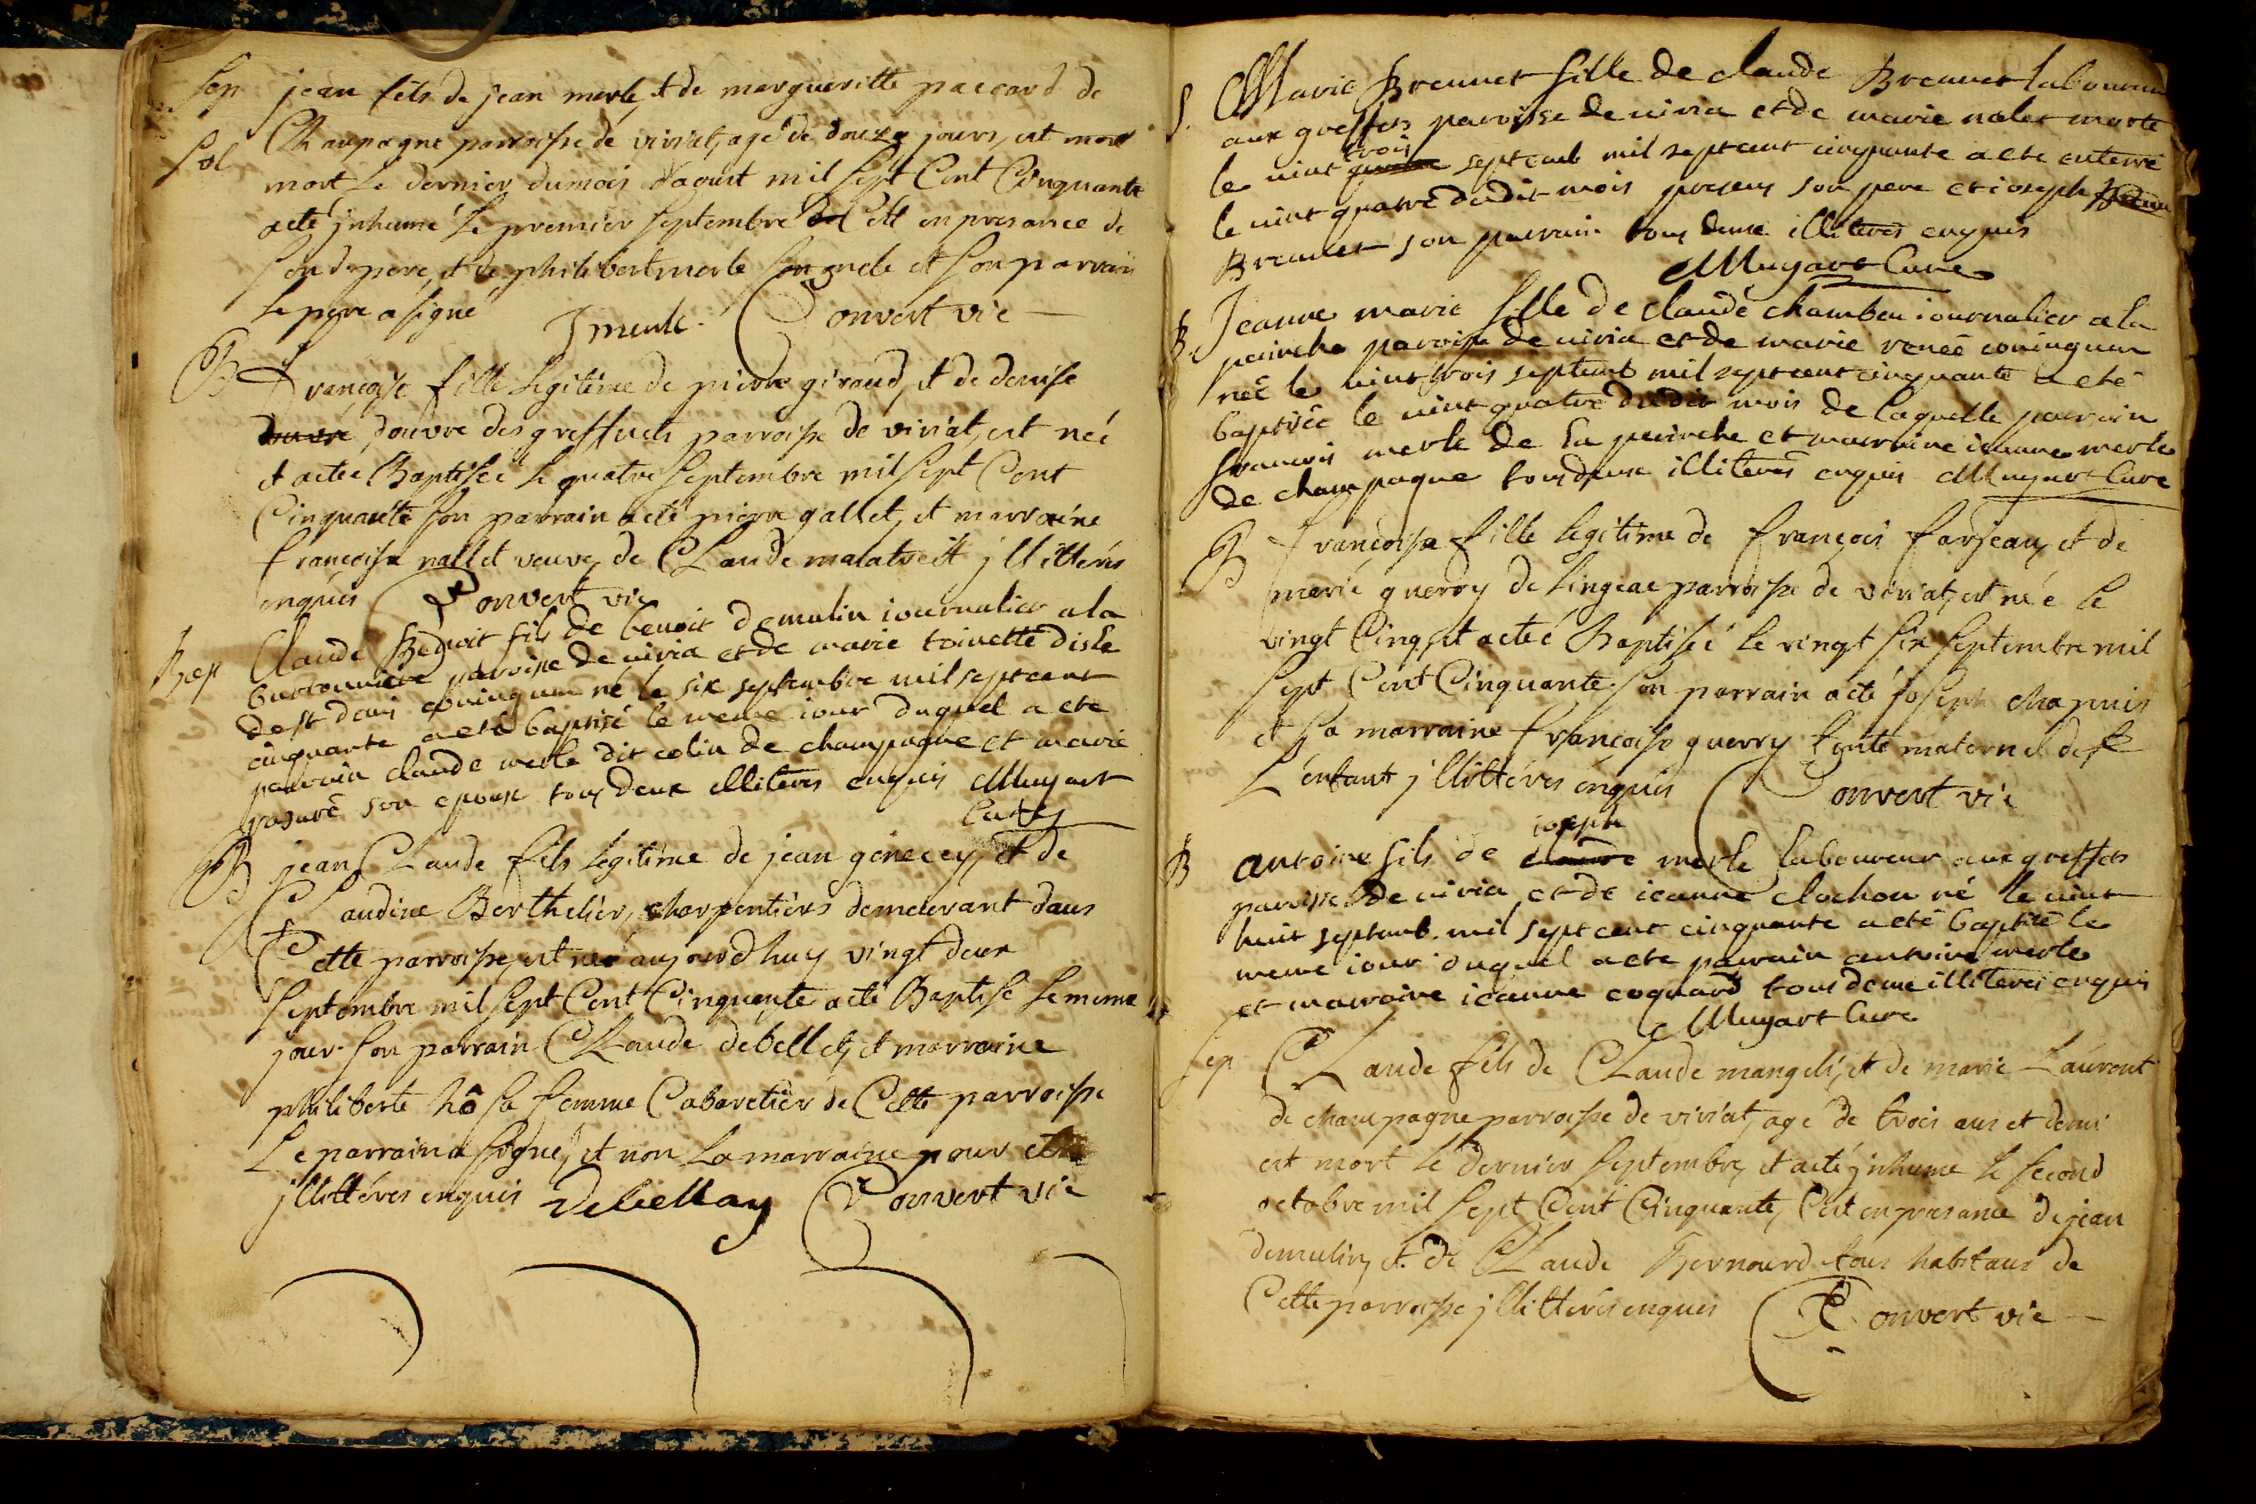 Sep jean fils de jean merle, et de margueritte paccard de
Sol Champagne parroisse de viriat, agé de douze jours, est mort
mort le dernier du mois d'aoust mil sept Cent Cinquante
a eté jnhumé le premier septembre et Ce en presance de
son d. pere, et de philibert merle son oncle et son parrain
le pere a signé J merle. Convert vic
B Francoise fille legitime de pierre giraud, et de denise
douvre douvre des greffets parroisse de viriat, est née
et a eteé Baptiseé le quatre septembre mil sept Cent
Cinquante son parrain a eté pierre gallet, et marraine
francoise nallet veuve de CLaude malatreit jllitterés
enquis Convert vic
Bap Claude Benoit fils de benoit demulin iournalier a la
buissonniere paroisse de viria et de marie toinette disle
dost dans couinquau né le six septembre mil sept cent
cinquante a eté baptisé le meme iour duquel a ete
parrain claude merle dit colin de champagne et marie
son epouse tous deux illiteres enquis Muyart
Curé
B jean CLaude fils legitime de jean genecey, et de
CLaudine Berthelier, charpentiers demeurant dans
Cette parroisse, est né aujourd'huy vingt deux
septembre mil sept Cent Cinquante a eté Baptisé le meme
jour son parrain CLaude debellay, et marraine
philiberte hô sa femme Cabaretier de Cette parroisse
Le parrain a signé, et non La marraine pour etre
jllittéres enquis Debellay Convert vic
S. Marie Brevuet fille de claude Brevuet laboureur
aux greffets paroisse de viria et de marie nalet morte
trois
le vint quatre septemb mil sept cent cinquante a ete enterré
le vint quatre dudit mois presens son pere et ioseph
Brevuet son parrain tous deux illiteres enquis
Muyart Cure
B. Jeanne marie fille de claude chambeu iournalier a la
peinche paroisse de viria et de marie reneé couinquau
neé le vint trois septemb mil sept cent cinquante a eté
baptiseé le vint quatre dudit mois de laquelle parrain
francois merle de la peinche et marraine ieanne merle
de champagne tous deux illiteres enquis Muyart Cure
B Francoise fille legitime de françois farjeau, et de
marie guerry de Lingeat parroisse de viriat, est née le
vingt Cinq, et a eteé Baptiseé le vingt six septembre mil
sept Cent Cinquante son parrain a eté joseph chapuis
et sa marraine francoise guerry tante maternel de
L'enfant jllittéres enquis Convert vic
ioseph
B antoine fils de claude merle laboureur aux greffets
paroisse de viria et de ieanne clochon né le vint
huit septemb. mil sept cent cinquante a eté baptisé le
meme iour duquel a ete parrain antoine merle
et marraine ieanne coquard tous deux illiteres enquis
Muyart Cure
Sep CLaude fils de CLaude mangeli, et de marie Laurent
de champagne parroisse de viriat, agé de trois ans et demi
est mort le dernier septembre, et a eté jnhumé le second
octobre mil sept Cent Cinquante, C'est en presance de jean
demulin, et de CLaude Bernourd tous habitans de
Cette parroisse jllitterés enquis Convert vic